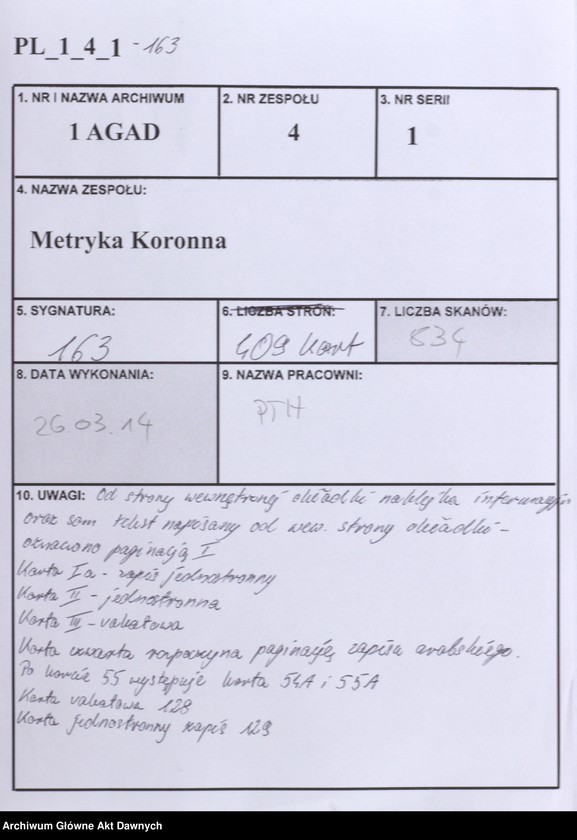 PL_1_4_1 - 163
1. NR I NAZWA ARCHIWUM
1 AGAD
2. NR ZESPOŁU
4
3. NR SERII
1
4. NAZWA ZESPOŁU:
Metryka Koronna
5. SYGNATURA:
163
6. LICZBA STRON:
409 kart
7. LICZBA SKANÓW:
834
8. DATA WYKONANIA:
26.03.14
9. NAZWA PRACOWNI:
PTH
10. UWAGI: Od strony wewnętrznej okładki naklejka
oraz sam tekst napisany od wew. strony okładki –
oznaczono paginacją I
Karta Ia - zapis jednostronny
Karta II - jednostronna
Karta III - vakatowa
Karta czwarta rozpoczyna paginację zapisu arabskiego.
Po karcie 55 występuje karta 54A i 55A
Karta vakatowa 128
Karta jednostronny zapis 129
Archiwum Główne Akt Dawnych